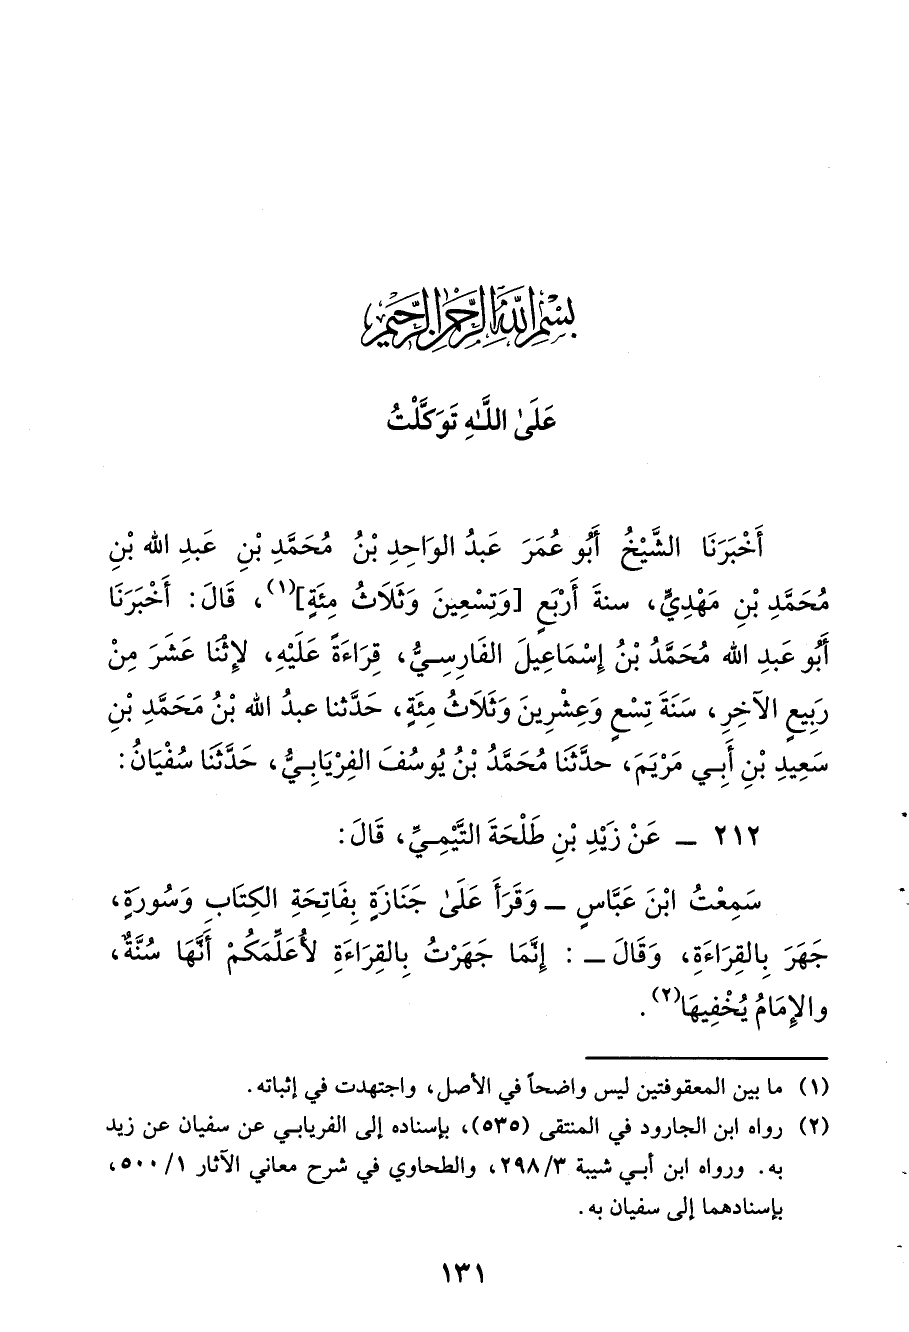 بِسْمِ اللَّهِ الرَّحْمَٰنِ الرَّحِيمِ
عَلَىٰ اللَّـٰهِ تَوَكَّلْتُ
أَخْبَرَنَا الشَّيْخُ أَبُو عُمَرَ عَبدُ الوَاحِدِ بْنُ مُحَمَّدِ بْنِ عَبدِ الله بْنِ
مُحَمَّدِ بْنِ مَهْدِيٍّ، سنةَ أَرْبَعٍ [وَتِسْعِينَ وَثَلَاثُ مِئَةٍ]⁽١⁾، قَالَ: أَخْبَرَنَا
أَبُو عَبدِ الله مُحَمَّدُ بْنُ إِسْمَاعِيلَ الفَارِسِيُّ، قِرَاءَةً عَلَيْهِ، لِإثْنَا عَشَرَ مِنْ
رَبِيعٍ الآخِرِ، سَنَةَ تِسْعٍ وَعِشْرِينَ وَثَلَاثُ مِئَةٍ، حَدَّثنا عبدُ الله بْنُ مَحَمَّدِ بْنِ
سَعِيدِ بْنِ أَبِي مَرْيَمَ، حدَّثَنَا مُحَمَّدُ بْنُ يُوسُفَ الفِرْيَابِيُّ، حَدَّثَنَا سُفْيَانُ:
٢١٢ ـ عَنْ زَيْدِ بْنِ طَلْحَةَ التَّيْمِيِّ، قَالَ:
سَمِعْتُ ابْنَ عَبَّاسٍ ـ وَقَرَأَ عَلَىٰ جَنَازَةٍ بِفَاتِحَةِ الكِتَابِ وَسُورَةٍ،
جَهَرَ بِالقِرَاءَةِ، وَقَالَ ـ : إِنَّمَا جَهَرْتُ بِالقِرَاءَةِ لأُعَلِّمَكُمْ أَنَّهَا سُنَّةٌ،
والإِمَامُ يُخْفِيهَا⁽٢⁾.
(١) ما بين المعقوفتين ليس واضحاً في الأصل، واجتهدت في إثباته.
(٢) رواه ابن الجارود في المنتقى (٥٣٥)، بإسناده إلى الفريابي عن سفيان عن زيد
به. ورواه ابن أبي شيبة ٢٩٨/٣، والطحاوي في شرح معاني الآثار ٥٠٠/١،
بإسنادهما إلى سفيان به.
١٣١